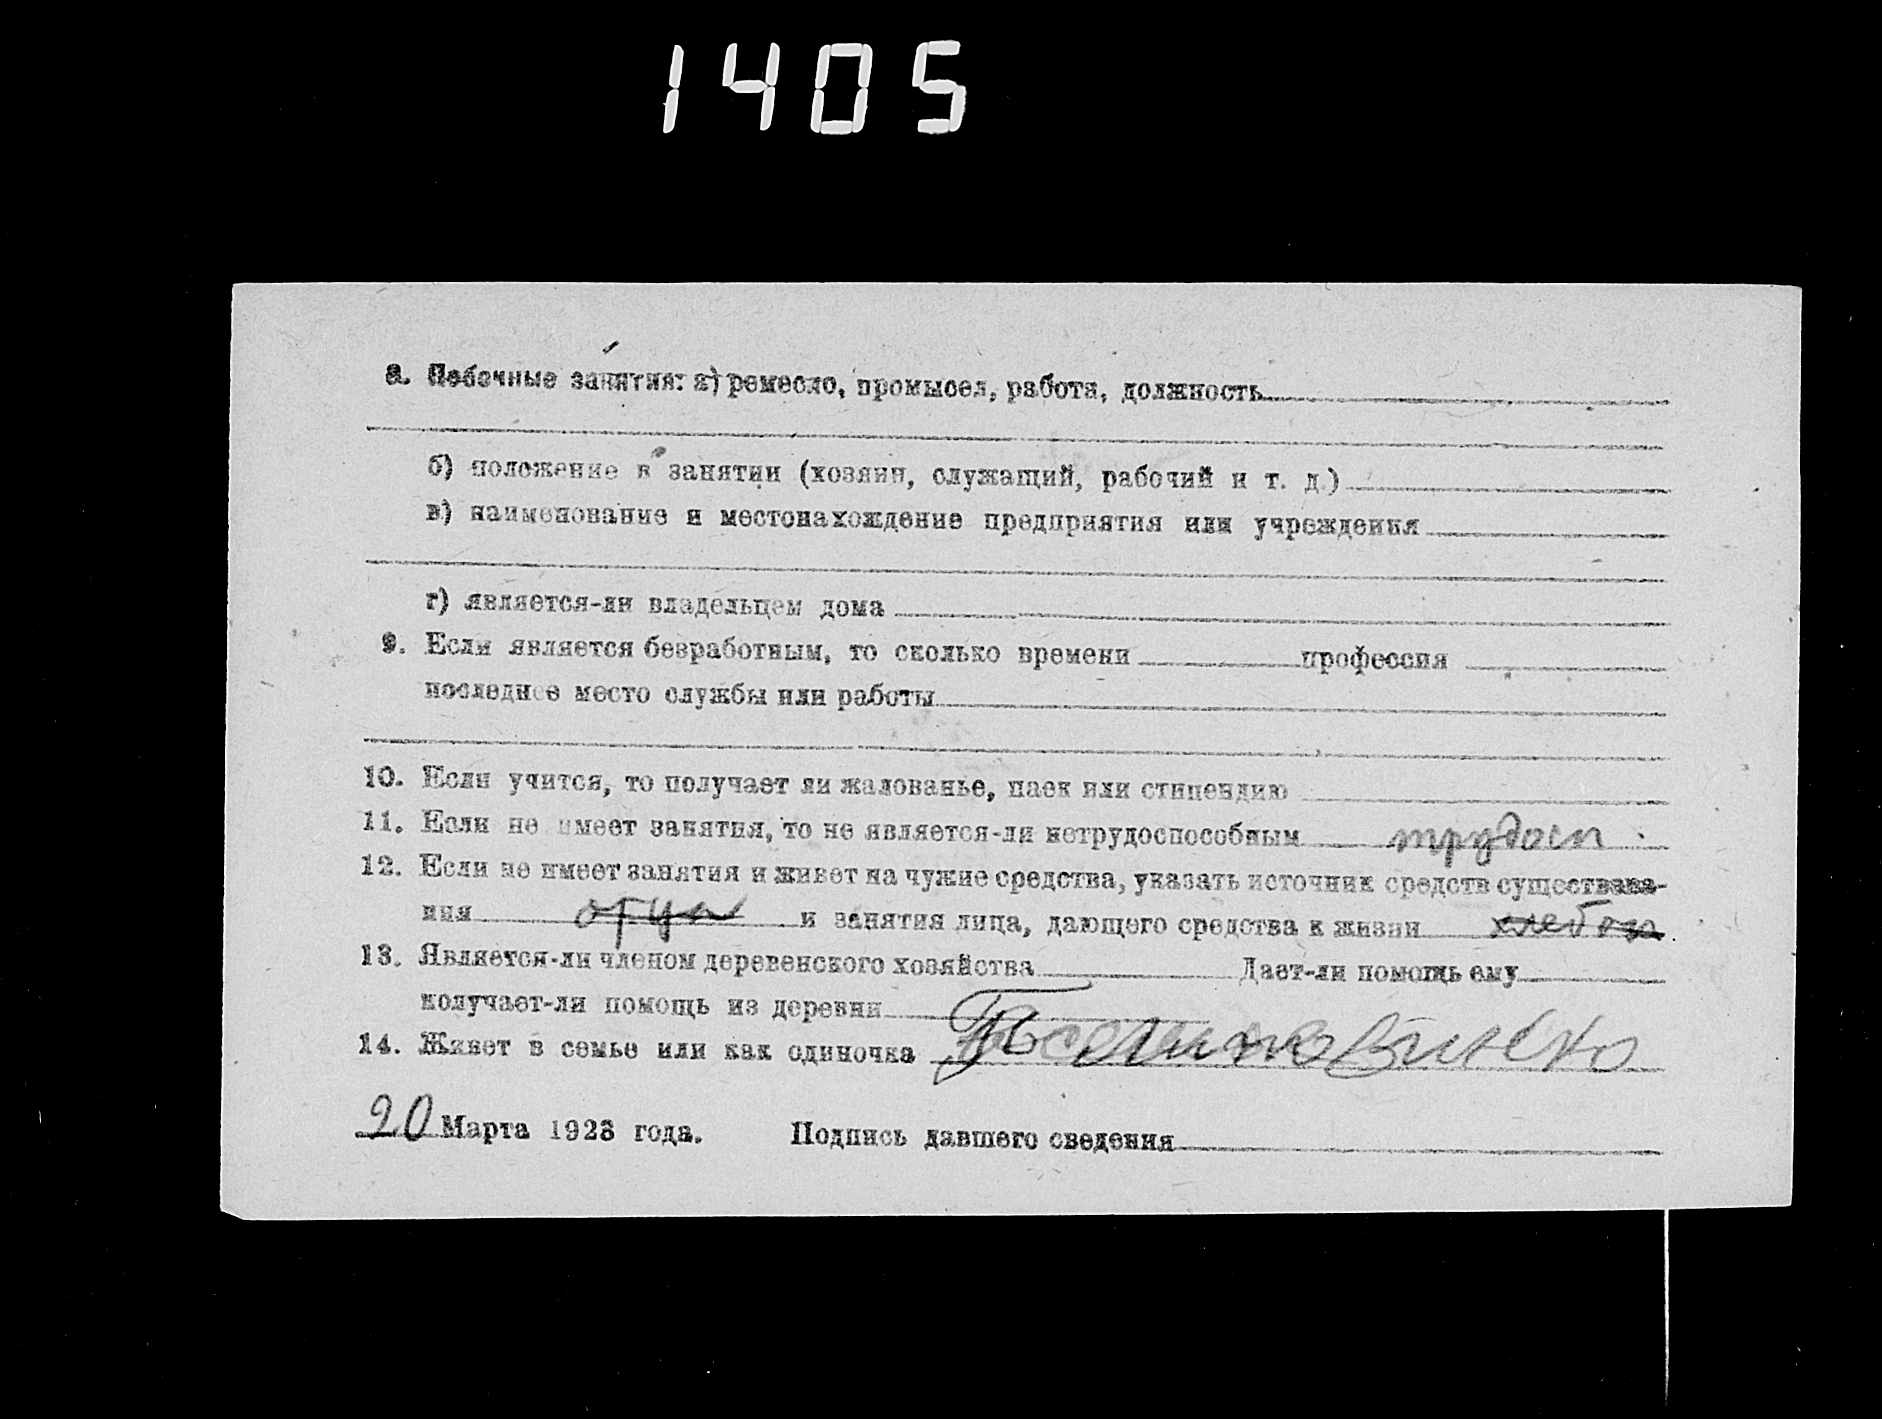 1405
8. Побочные занятия: а) ремесло, промысел, работа, должность
б) положение в занятии (хозяин, служащий, рабочий и т. д.)
в) наименование и местонахождение предприятия или учреждения
г) является-ли владельцем дома
9. Если является безработным, то сколько времени профессия
последнее место службы или работы
10. Если учится, то получает ли жалованье, паек или стипендию
11. Если не имеет занятия, то не является-ли нетрудоспособным трудосп
12. Если не имеет занятия и живет на чужие средства, указать источник средств существова-
ния и занятия лица, дающего средства к жизни хлебор
13. Является-ли членом деревенского хозяйства Дает-ли помощь ему
получает-ли помощь из деревни
14. Живет в семье или как одиночка
20 Марта 1923 года. Подпись давшего сведения